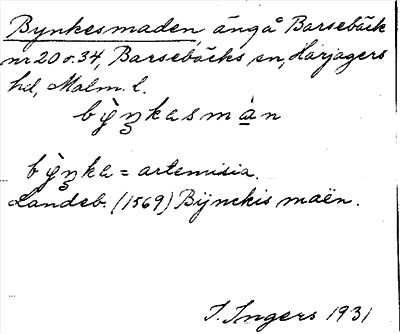 Bynkesmaden, ängå Barsebäck
nr 20 o. 34, Barsebäcks sn, Harjagers
hd, Malm. l.
bỳŋkasman
bỳŋka = artemisia.
Landeb. (1569) Bijnckis maën.
I. Ingers 1931